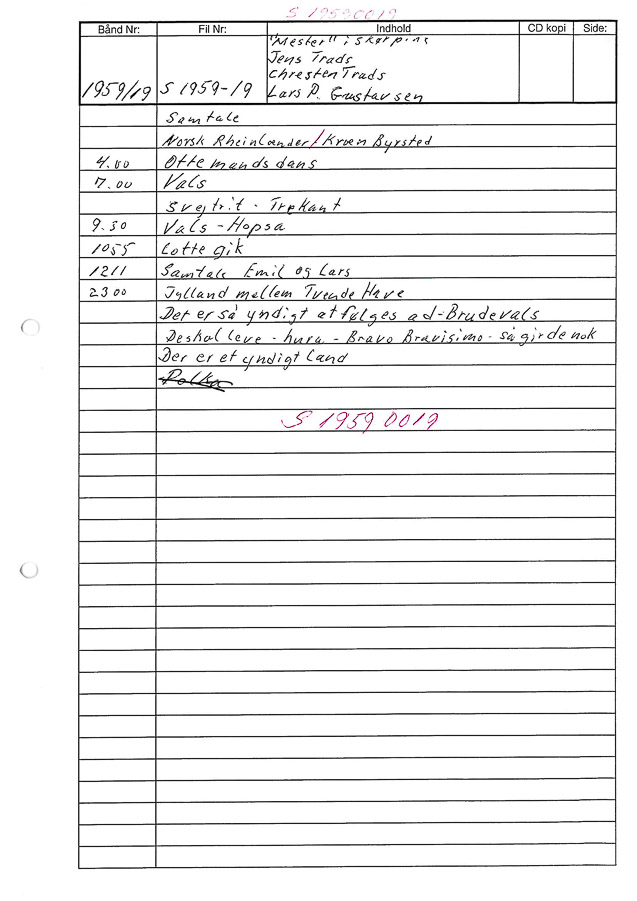 S 19590019
Bånd Nr: Fil Nr: Indhold CD kopi Side:
"Mester" i Skørping
Jens Trads
Chresten Trads
1959/19 S 1959-19 Lars P. Gustavsen
Samtale
Norsk Rheinlænder/Kræn Byrsted
4.00 Otte mands dans
7.00 Vals
Svejtrit - Trekant
9.50 Vals - Hopsa
1055 Lotte gik
1211 Samtale Emil og Lars
2300 Jylland mellem Tvende Have
Det er så yndigt at følges ad - Brudevals
De skal leve - hura - Bravo Bravisimo - så gir de nok
Der er et yndigt Land
Polka
S 1959 0019